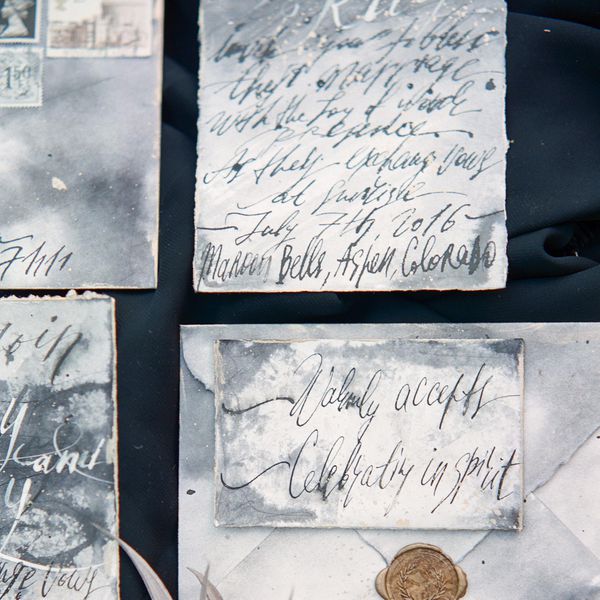 you to bless
their marriage
with the joy of
presence
As they exchang vows
at sunrise
July 7th 2016
Maroon Bells, Aspen, Colorado
join
and
vows
accepts
Celebratin in spirit